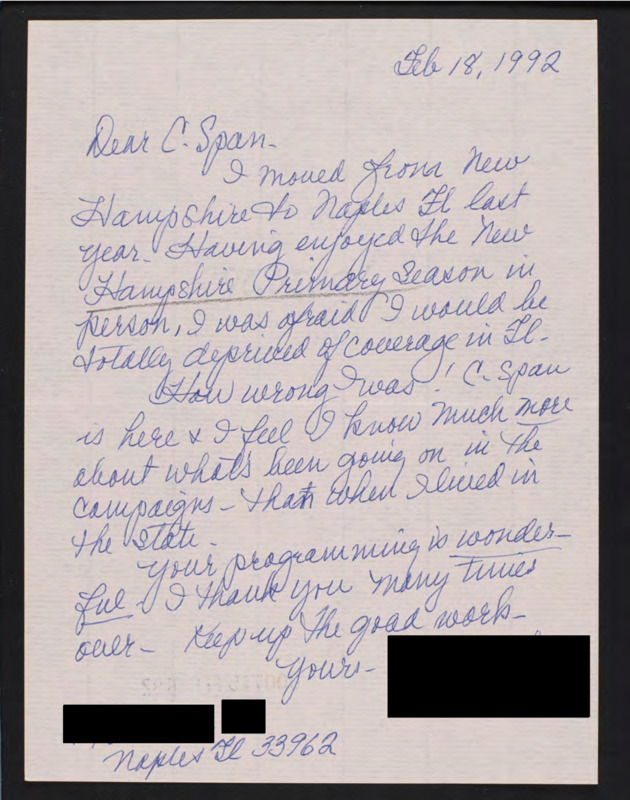 Feb 18, 1992
Dear C. Span-
I moved from New
Hampshire to Naples Fl last
year. Having enjoyed the New
Hampshire Primary Season in
person, I was afraid I would be
totally deprived of coverage in Fl.
How wrong I was! C. Span
is here & I feel I know much more
about what's been going on in the
campaigns - than when I lived in
the state.
Your programming is wonder-
ful. I thank you many times
over- Keep up the good work-
Yours-
Naples Fl 33962